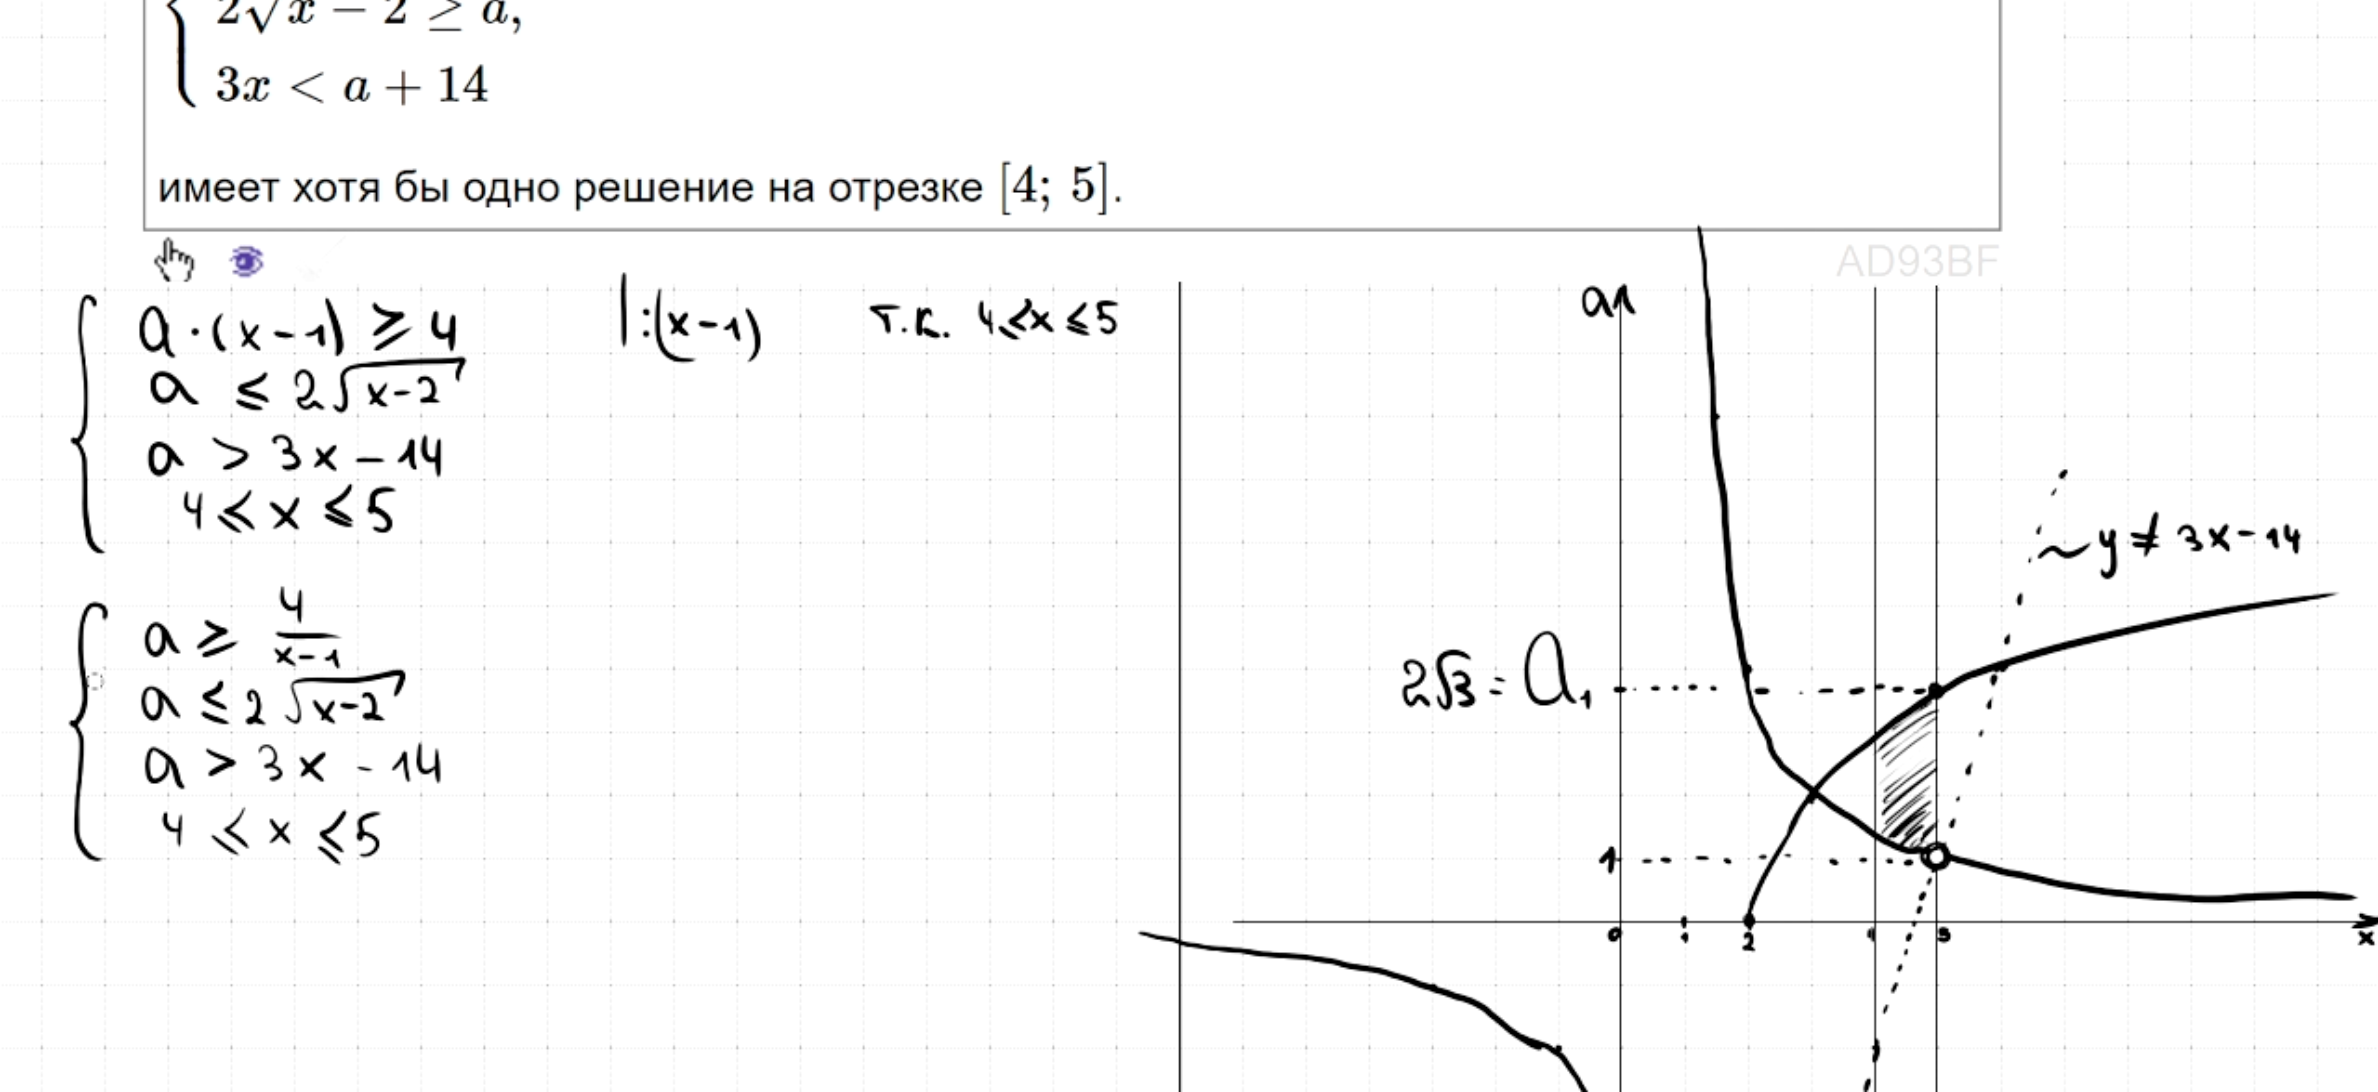 2√x − 2 ≥ a,
3x < a + 14
имеет хотя бы одно решение на отрезке [4; 5].
AD93BF
a·(x-1) ≥ 4 |:(x-1) т.к. 4≤x≤5
a ≤ 2√x-2
a > 3x-14
4≤x≤5
a ≥ 4/x-1
a ≤ 2√x-2
a > 3x-14
4≤x≤5
a
~y≠3x-14
2√3 = a₁
1
0 1 2 5 x